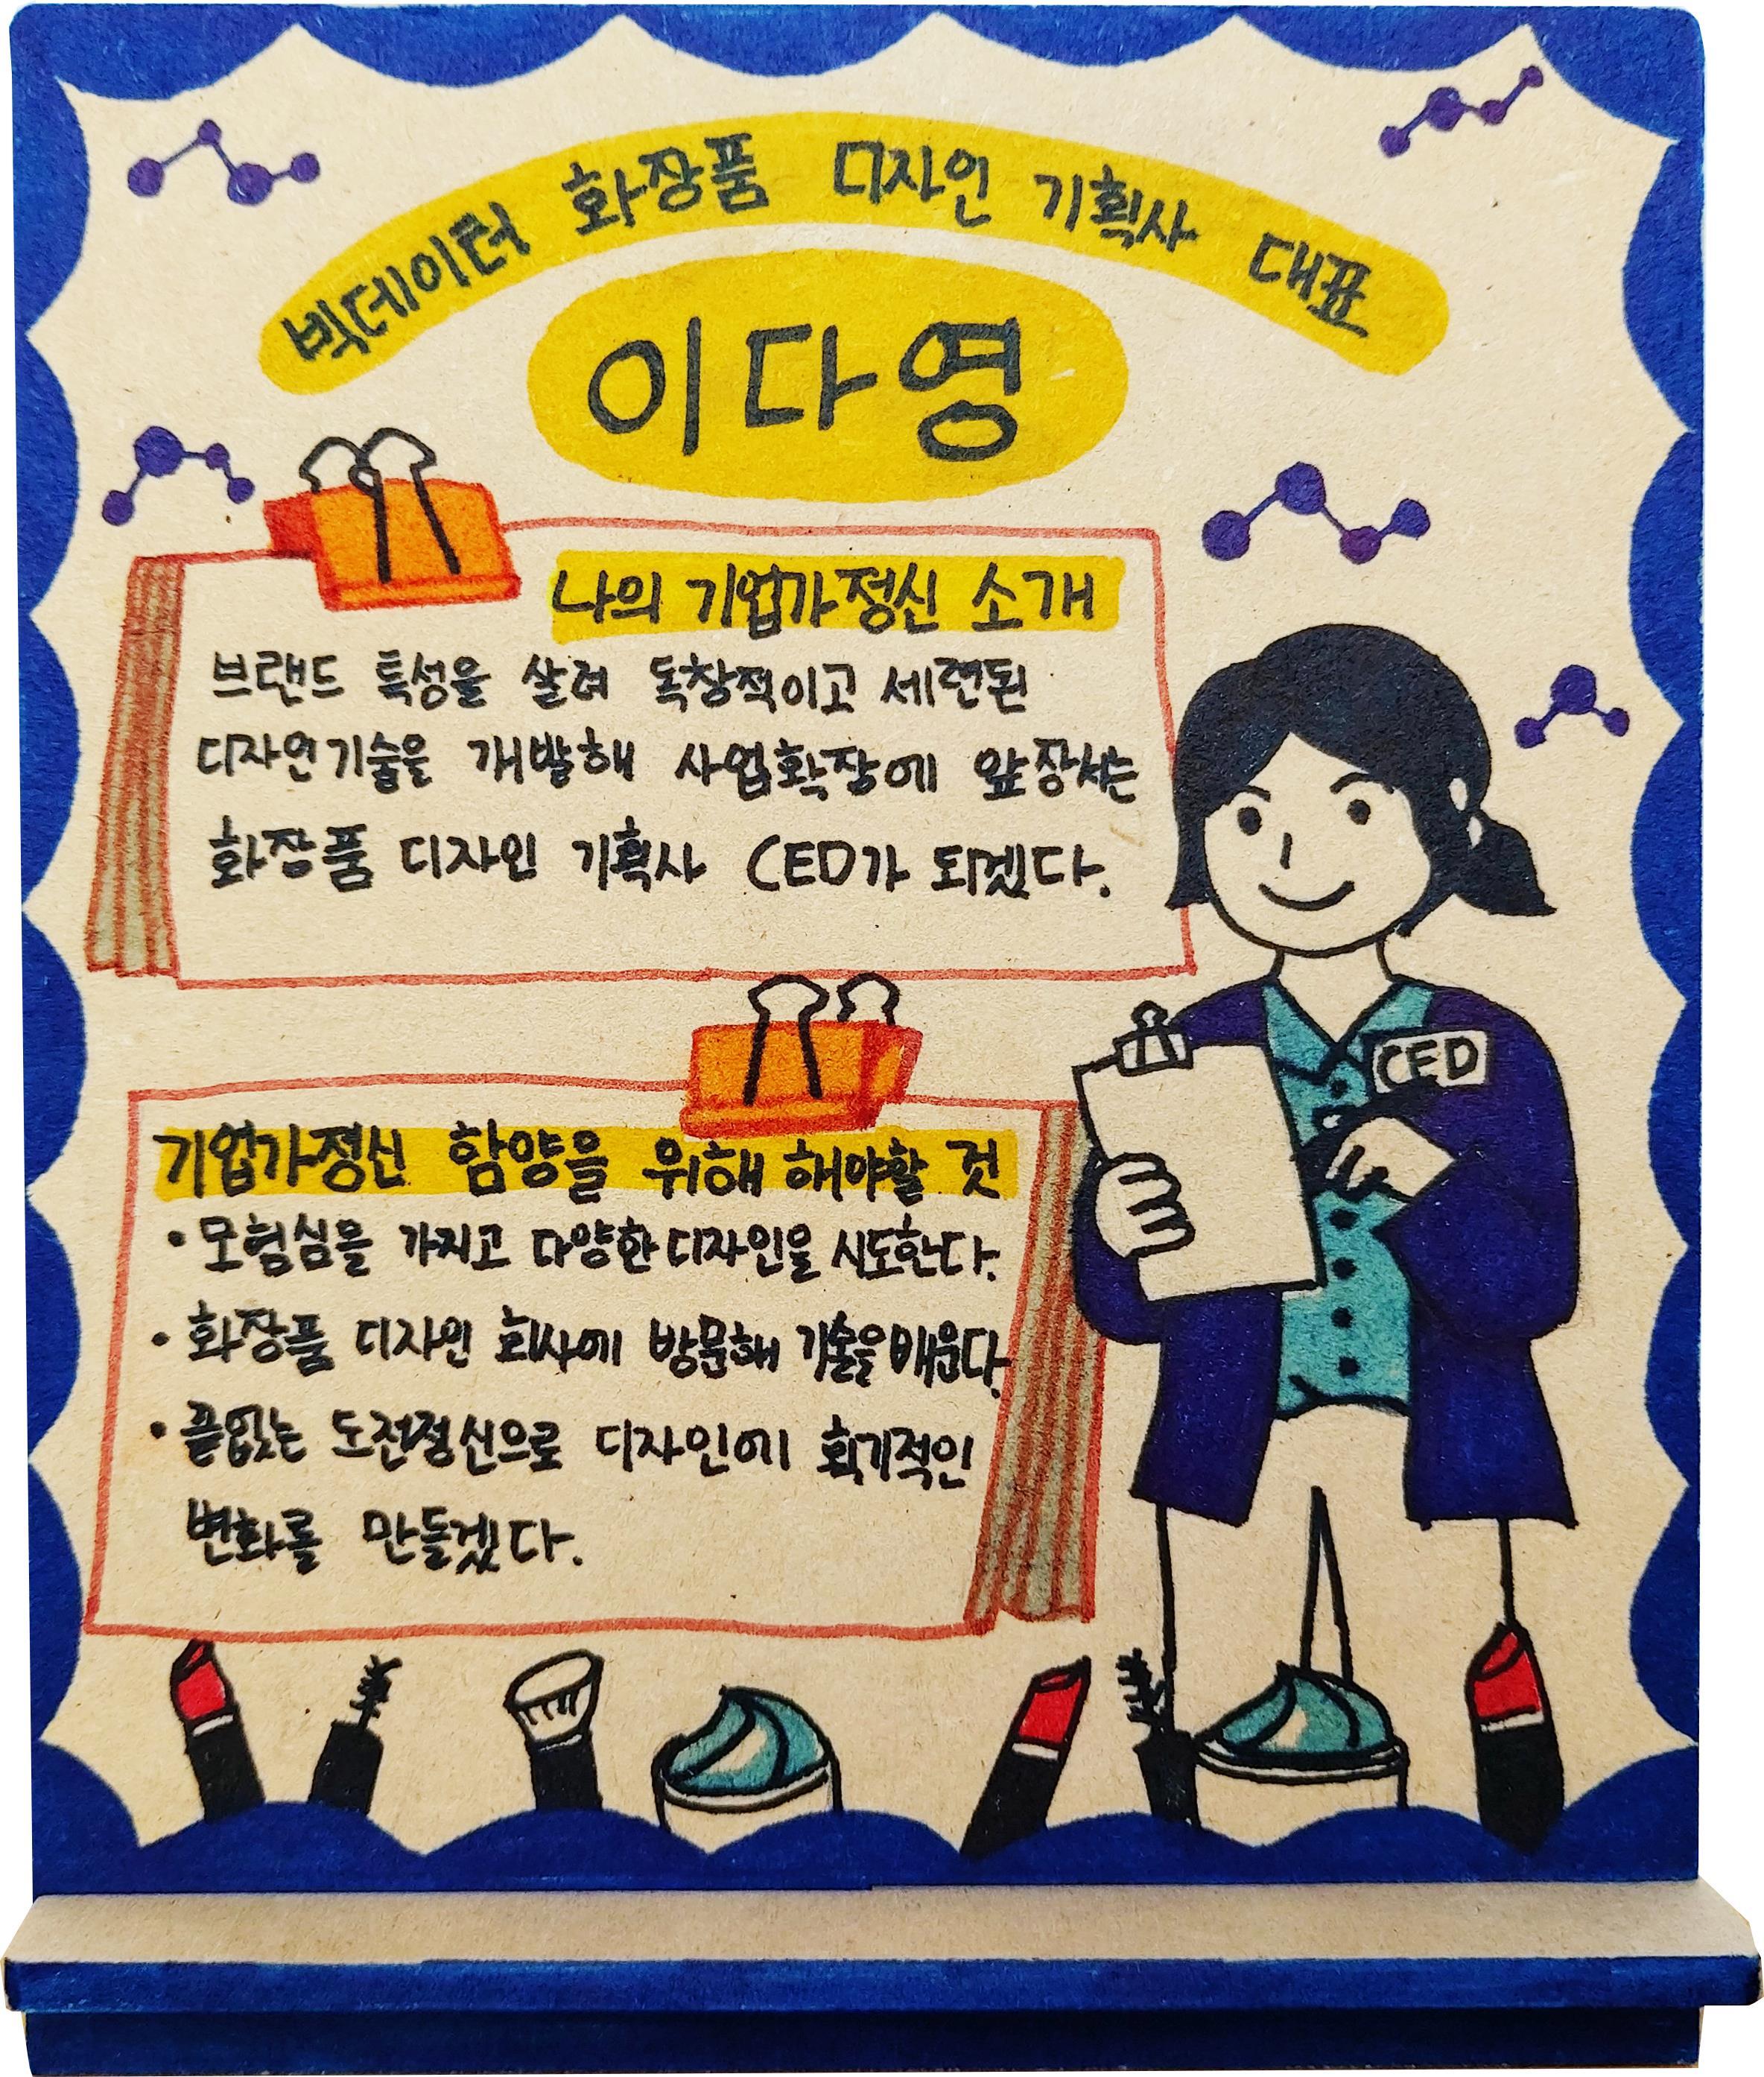 빅데이터 화장품 디자인 기획사 대표
이다영
나의 기업가정신 소개
브랜드 특성을 살려 독창적이고 세련된
디자인기술을 개발해 사업확장에 앞장서는
화장품 디자인 기획사 CEO가 되겠다.
CEO
기업가정신 함양을 위해 해야할 것
• 모험심을 가지고 다양한 디자인을 시도한다.
• 화장품 디자인 회사에 방문해 기술을 배운다.
• 끝없는 도전정신으로 디자인에 획기적인
변화를 만들겠다.